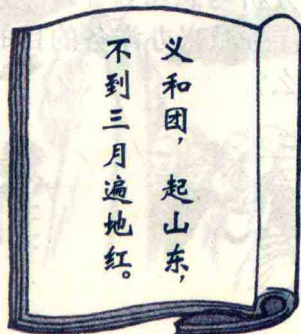 义和团，起山东，
不到三月遍地红。